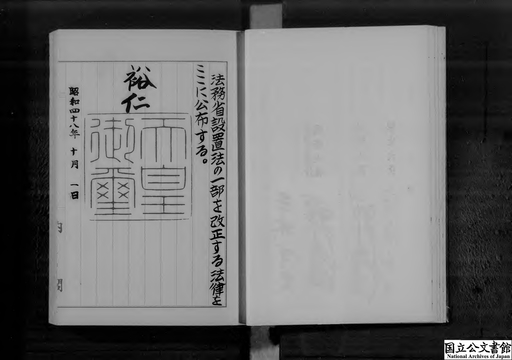 法務省設置法の一部を改正する法律を
ここに公布する。
裕仁
天皇
御璽
昭和四十八年十月一日
国立公文書館
National Archives of Japan